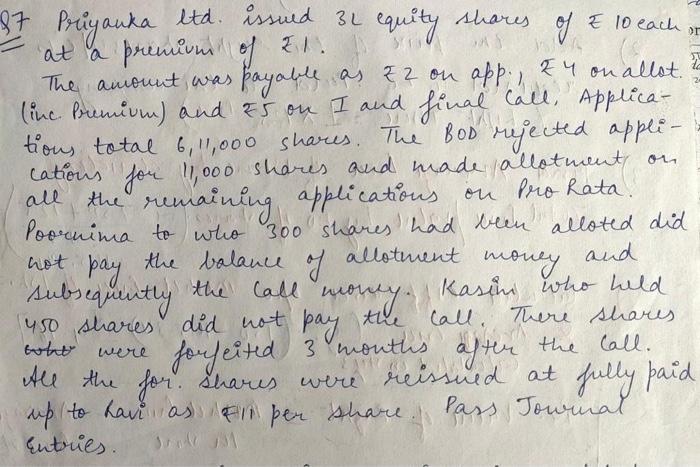 Q7 Priyanka ltd. issued 3L equity shares of ₹ 10 each
at a premium of ₹1.
The amount was payable as ₹2 on app., ₹4 on allot.
(inc. Premium) and ₹5 on I and final Call. Applica-
tions total 6,11,000 shares. The BOD rejected appli-
cations for 11,000 shares and made allotment on
all the remaining applications on Pro Rata.
Poornima to who 300 shares had been alloted did
not pay the balance of allotment money and
subsequently the Call money. Kasim who held
450 shares did not pay the call. There shares
were forfeited 3 months after the Call.
All the for. shares were reissued at fully paid
up to Ravi as ₹11 per share. Pass Journal
Entries.